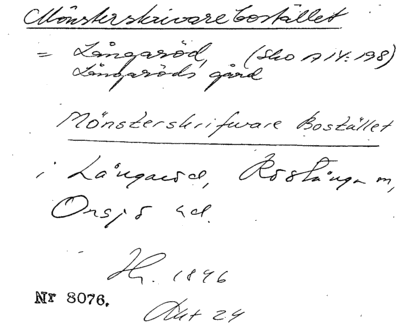 Mönsterskrivarebostället
= Långaröd, (Sko A IV: 198)
Långaröds gård
Mönsterskrifware Bostället
i Långaröd, Röstånga sn,
Onsjö hd.
Hr. 1846
Nr 8076.
Akt 24